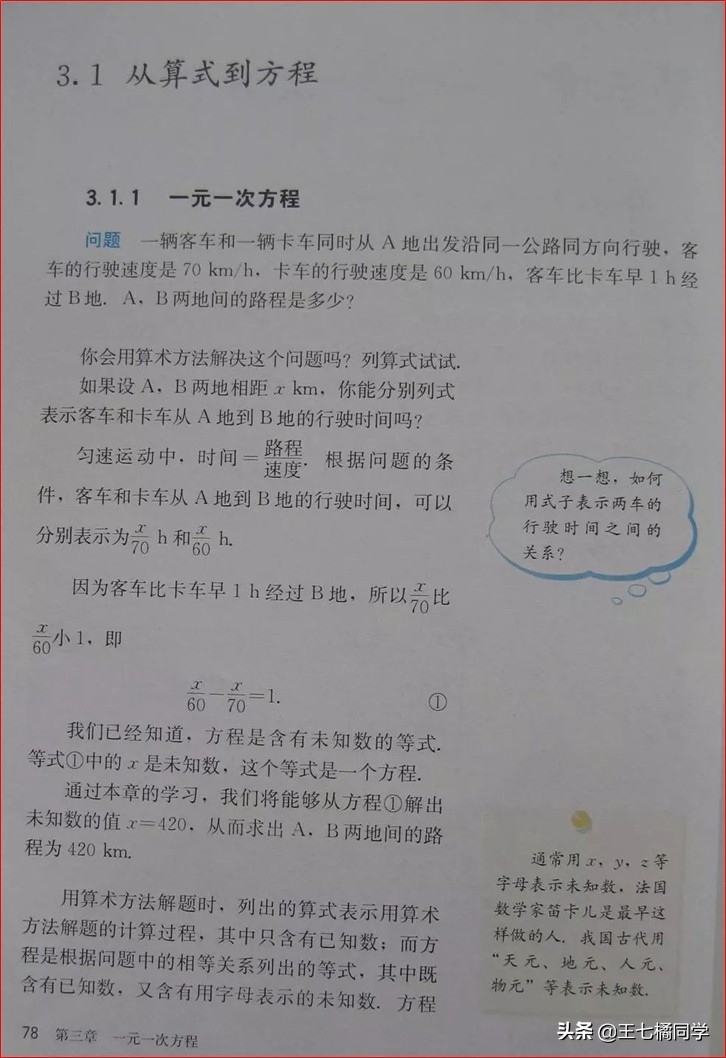 3.1 从算式到方程
3.1.1 一元一次方程
问题 一辆客车和一辆卡车同时从 A 地出发沿同一公路同方向行驶，客
车的行驶速度是 70 km/h，卡车的行驶速度是 60 km/h，客车比卡车早 1 h 经
过 B 地．A，B 两地间的路程是多少？
你会用算术方法解决这个问题吗？列算式试试.
如果设 A，B 两地相距 x km，你能分别列式
表示客车和卡车从 A 地到 B 地的行驶时间吗？
匀速运动中，时间＝路程/速度．根据问题的条
件，客车和卡车从 A 地到 B 地的行驶时间，可以
分别表示为 x/70 h 和 x/60 h.
因为客车比卡车早 1 h 经过 B 地，所以 x/70 比
x/60 小 1，即
x/60－x/70＝1. ①
我们已经知道，方程是含有未知数的等式.
等式①中的 x 是未知数，这个等式是一个方程.
通过本章的学习，我们将能够从方程①解出
未知数的值 x＝420，从而求出 A，B 两地间的路
程为 420 km.
用算术方法解题时，列出的算式表示用算术
方法解题的计算过程，其中只含有已知数；而方
程是根据问题中的相等关系列出的等式，其中既
含有已知数，又含有用字母表示的未知数．方程
想一想，如何
用式子表示两车的
行驶时间之间的
关系？
通常用 x，y，z 等
字母表示未知数，法国
数学家笛卡儿是最早这
样做的人．我国古代用
“天元、地元、人元、
物元”等表示未知数.
78 第三章 一元一次方程
头条 @王七橘同学